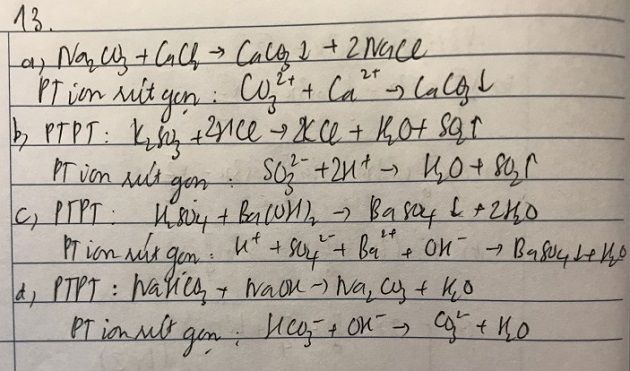 13.
a, Na₂CO₃ + CaCl₂ → CaCO₃ ↓ + 2NaCl
PT ion rút gọn : CO₃²⁺ + Ca²⁺ → CaCO₃↓
b, PTPT : K₂SO₃ + 2HCl → 2KCl + H₂O + SO₂↑
PT ion rút gọn : SO₃²⁻ + 2H⁺ → H₂O + SO₂↑
c, PTPT : H₂SO₄ + Ba(OH)₂ → BaSO₄ ↓ + 2H₂O
PT ion rút gọn : H⁺ + SO₄²⁻ + Ba²⁺ + OH⁻ → BaSO₄↓ + H₂O
d, PTPT : NaHCO₃ + NaOH → Na₂CO₃ + H₂O
PT ion rút gọn : HCO₃⁻ + OH⁻ → CO₃²⁻ + H₂O